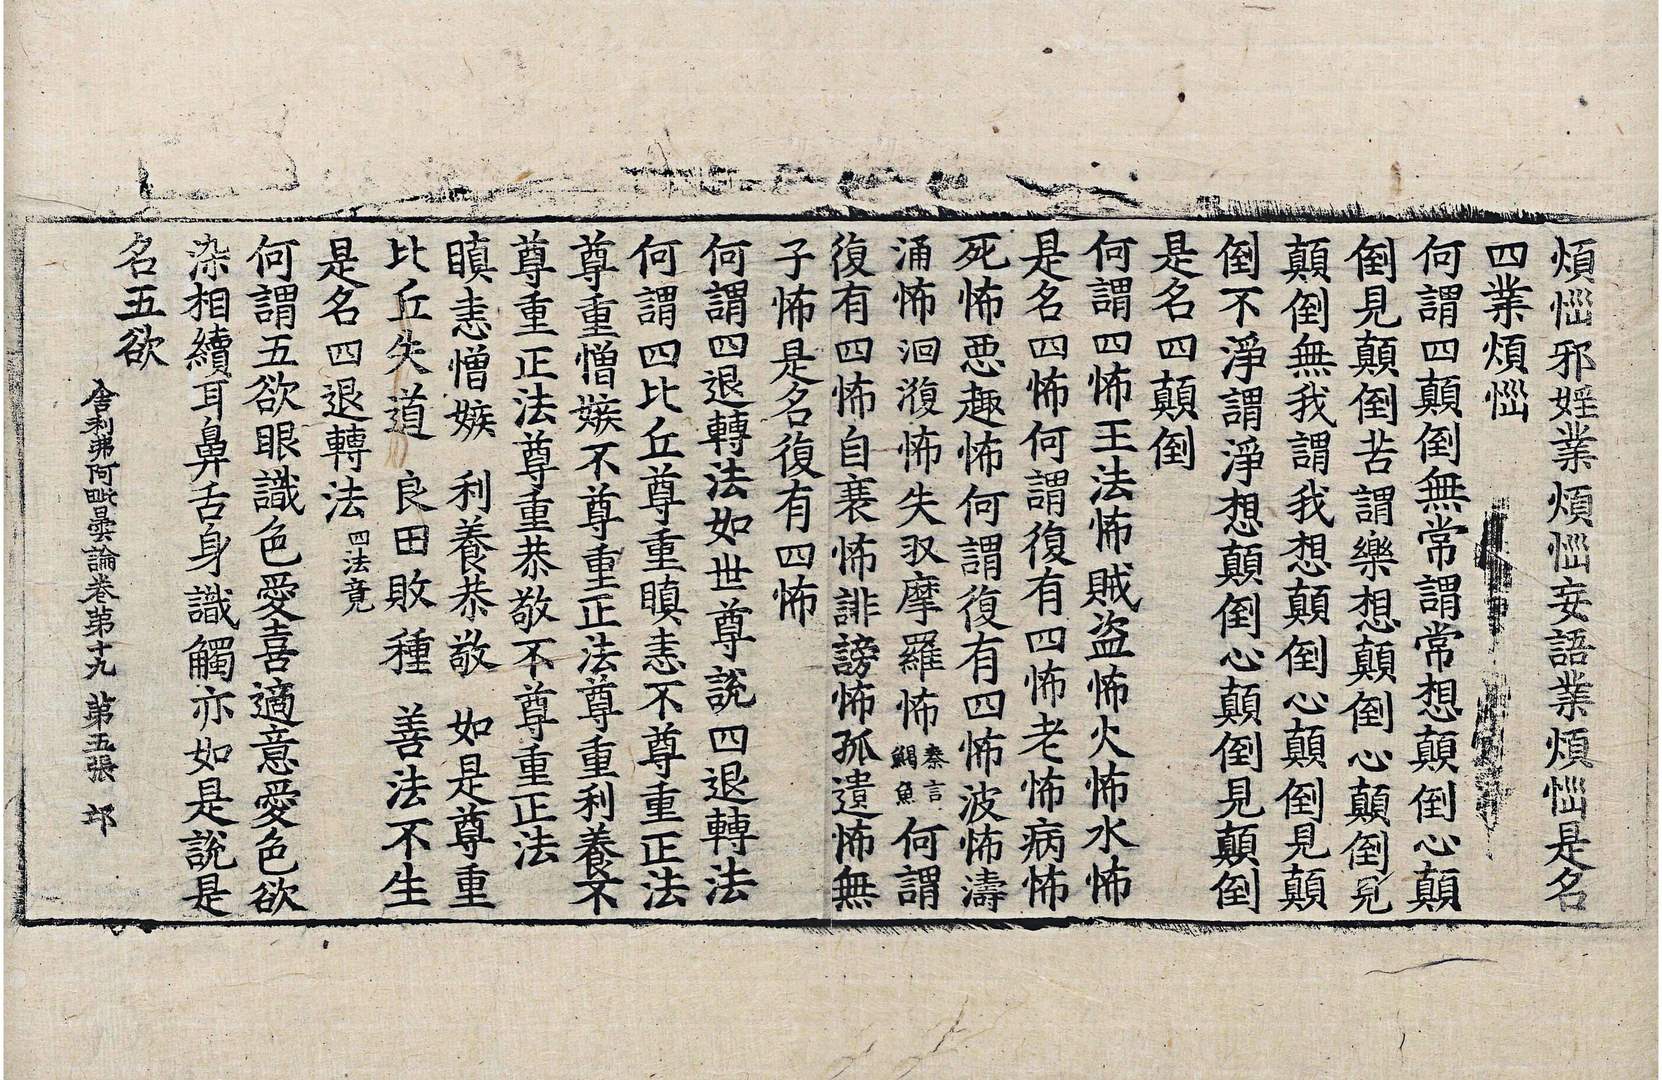 煩惱邪婬業煩惱妄語業煩惱是名
四業煩惱
何謂四顛倒無常謂常想顛倒心顛
倒見顛倒苦謂樂想顛倒心顛倒見
顛倒無我謂我想顛倒心顛倒見顛
倒不淨謂淨想顛倒心顛倒見顛倒
是名四顛倒
何謂四怖王法怖賊盗怖火怖水怖
是名四怖何謂復有四怖老怖病怖
死怖惡趣怖何謂復有四怖波怖濤
涌怖洄澓怖失収摩羅怖秦言䱜魚何謂
復有四怖自衰怖誹謗怖孤遺怖無
子怖是名復有四怖
何謂四退轉法如世尊說四退轉法
何謂四比丘尊重瞋恚不尊重正法
尊重憎嫉不尊重正法尊重利養不
尊重正法尊重恭敬不尊重正法
瞋恚憎嫉 利養恭敬 如是尊重
比丘失道 良田敗種 善法不生
是名四退轉法四法竟
何謂五欲眼識色愛喜適意愛色欲
染相續耳鼻舌身識觸亦如是說是
名五欲
舍利弗阿毗曇論卷第十九 第五張 邙